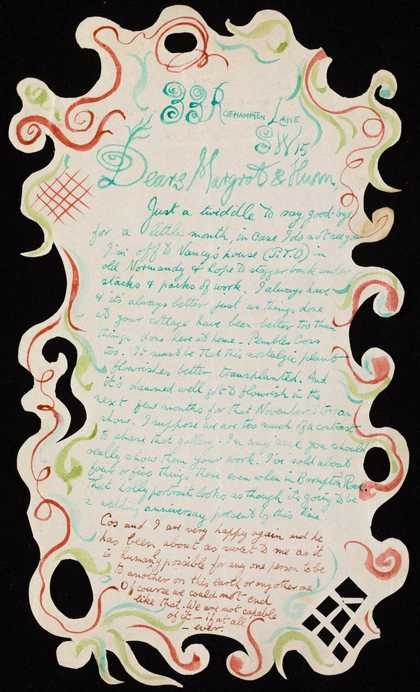 33 Roehampton Lane
SW15
Dears Margrot & Hum.
Just a twiddle to say goodbye
for a little month, in case I do not see you
I'm off to Nancy's house (P.T.O) in
old Normandy & hope to stagger back under
stacks & packs of work. I always have
& it's always better. Just as things done
at your cottage have been better too than
things done here at home. Pembles Coss
too. It must be that this nostalgic plant
flourishes better transplanted. And
it's damned well got to flourish in the
next few months for that November
show. I suppose we are too much of a contrast
to share that gallery. I'm and you should
really show them your work. I've sold about
four or five things there even when in Brompton Road.
That Lolly portrait looks as though its going to be
a wedding anniversary present by this time!
Cos and I am very happy again and he
has been about as sweet to me as it
is humanly possible for any one person to be
to another on this earth or any other one
Of course we could not end
like that. We are not capable
of it – if at all
– ever.